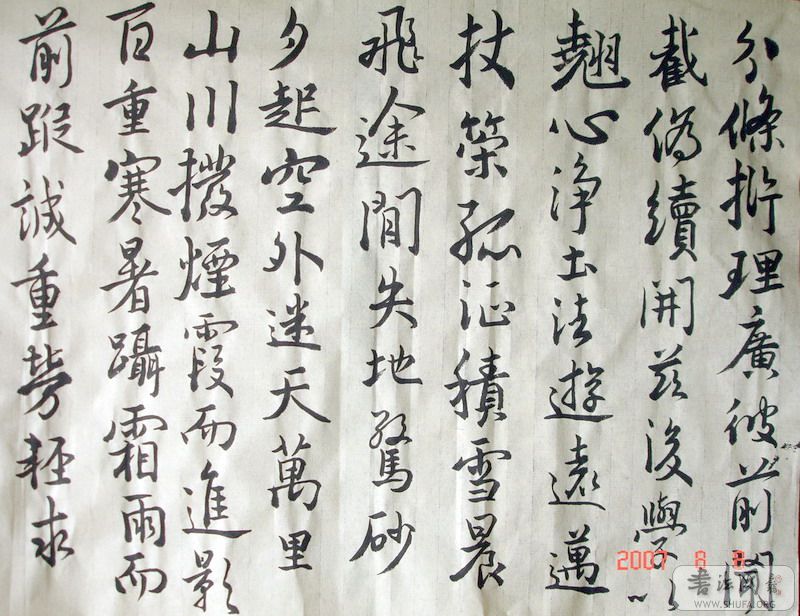 分條析理廣彼前聞
截偽續開茲後學
翹心淨土法遊遠邁
杖策孤征積雪晨
飛途間失地驚砂
夕起空外迷天萬里
山川撥煙霞而進影
百重寒暑躡霜雨而
前蹤誠重勞輕求
2007 8 8
书法网
WWW.SHUFA.ORG